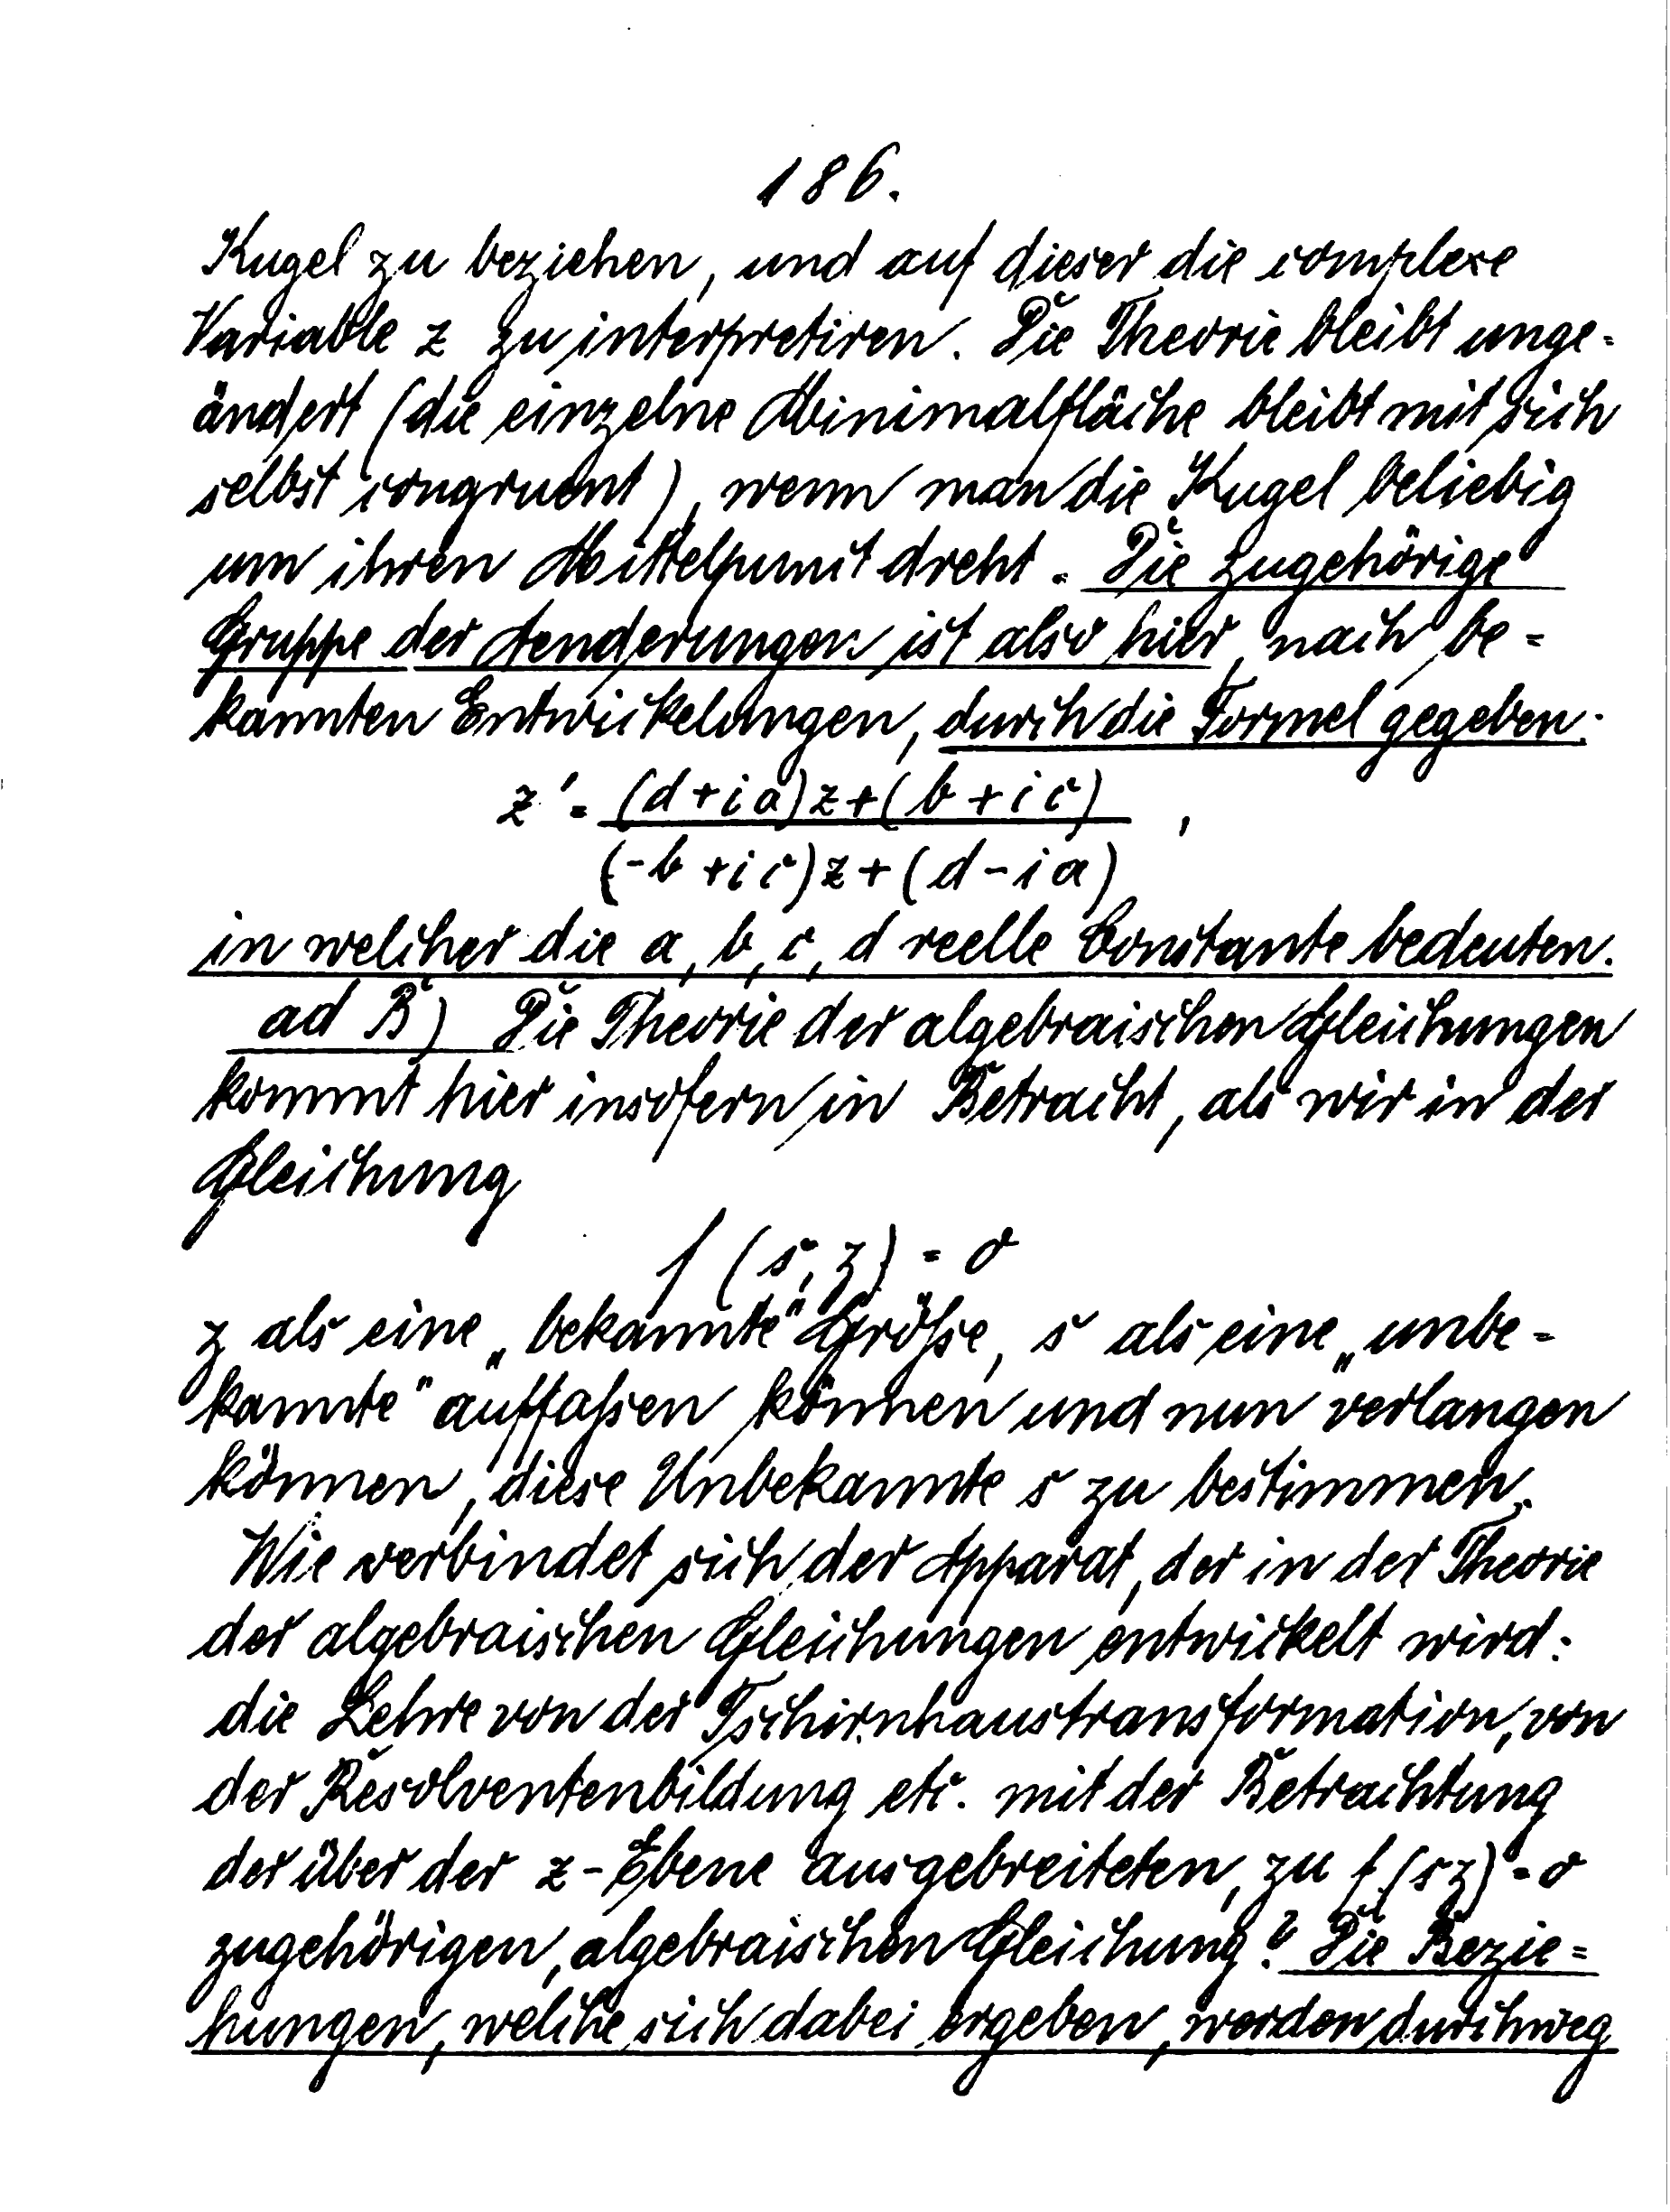 186.
Kugel zu beziehen, und auf dieser die complexe
Variable z zu interpretiren. Die Theorie bleibt unge-
ändert (die einzelne Minimalfläche bleibt mit sich
selbst congruent), wenn man die Kugel beliebig
um ihren Mittelpunct dreht. Die zugehörige
Gruppe der Aenderungen ist also hier, nach be-
kannten Entwickelungen, durch die Formel gegeben:
z' = \frac{(d+ia)z+(b+ic)}{(-b+ic)z+(d-ia)},
in welcher die a, b, c, d reelle Constante bedeuten.
ad B) Die Theorie der algebraischen Gleichungen
kommt hier insofern in Betracht, als wir in der
Gleichung
f (s, z) = 0
z als eine „bekannte" Größe, s als eine „unbe-
kannte" auffaßen können und nun verlangen
können, diese Unbekannte s zu bestimmen.
Wie verbindet sich der Apparat, der in der Theorie
der algebraischen Gleichungen entwickelt wird:
die Lehre von der Tschirnhaustransformation, von
der Resolventenbildung etc. mit der Betrachtung
der über der z-Ebene ausgebreiteten, zu f(sz)=0
zugehörigen, algebraischen Gleichung? Die Bezie-
hungen, welche sich dabei ergeben, werden durchweg